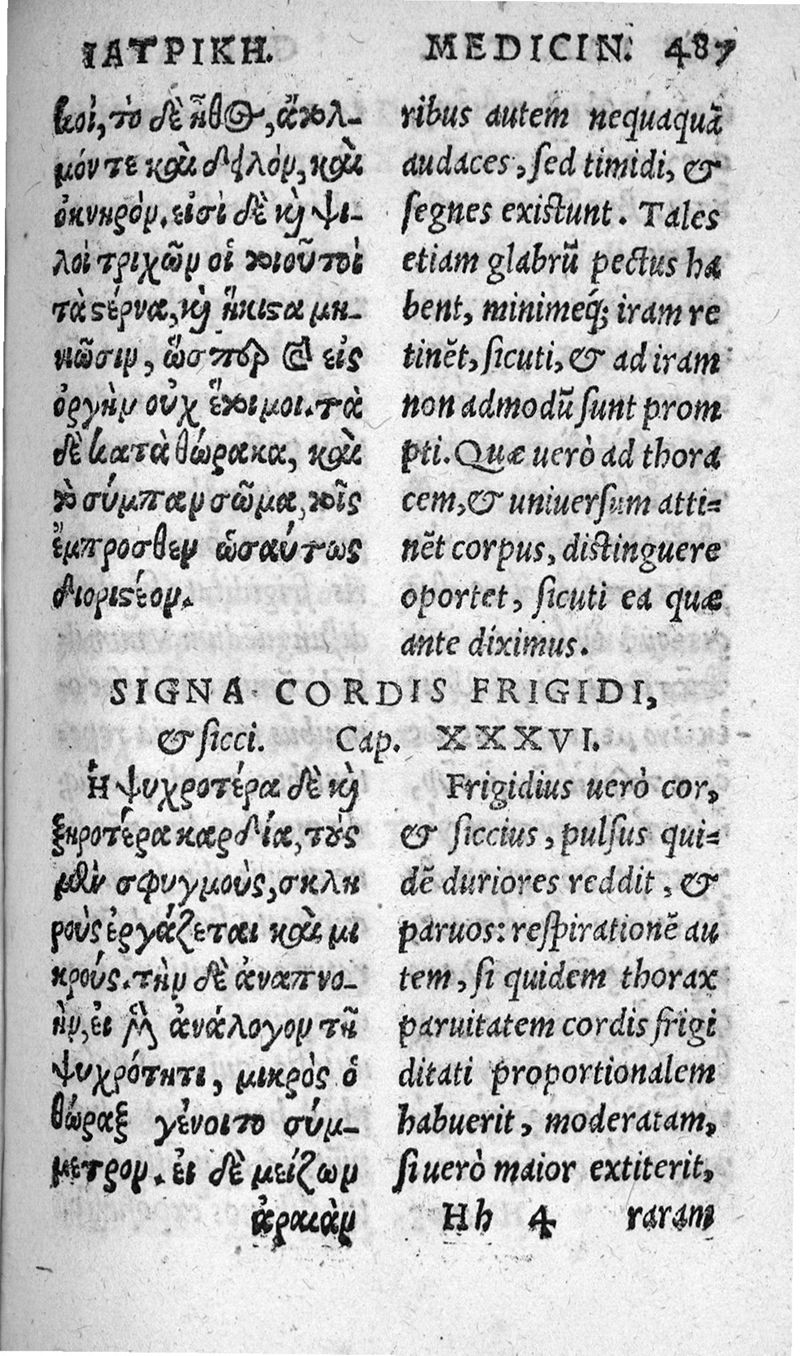 ΙΑΤΡΙΚΗ. MEDICIN. 487
κοὶ, τὸ δὲ ἦθος, ἄτολ-
μόν τε καὶ δειλὸν, καὶ
ὀκνηρὸν. εἰσὶ δὲ κὶ ψι-
λοὶ τριχῶν οἱ τοιοῦτοι
τὰ ϛέρνα, κὶ ἥκιϛα μη-
νιῶσιν, ὥσπερ οὖν εἰς
ὀργὴν οὐχ ἕτοιμοι. τὰ
δὲ κατὰ θώρακα, καὶ
τὸ σύμπαν σῶμα, τοῖς
ἔμπροσθεν ὡσαύτως
διοριϛέον.
ribus autem nequaquā
audaces, sed timidi, &
segnes existunt. Tales
etiam glabrū pectus ha
bent, minimeq; iram re
tinēt, sicuti, & ad iram
non admodū sunt prom
pti. Quæ uerò ad thora
cem, & uniuersum atti=
nēt corpus, distinguere
oportet, sicuti ea quæ
ante diximus.
SIGNA CORDIS FRIGIDI,
& sicci. Cap. XXXVI.
Ἡ ψυχροτέρα δὲ κὶ
ξηροτέρα καρδία, τοὺς
μὲν σφυγμοὺς, σκλη
ροὺς ἐργάζεται καὶ μι
κρούς. τὴν δὲ ἀναπνο-
ὴν, εἰ μὲν ἀνάλογον τῇ
ψυχρότητι, μικρὸς ὁ
θώραξ γένοιτο σύμ-
μετρον. εἰ δὲ μείζων
ἀραιὰν
Frigidius uerò cor,
& siccius, pulsus qui=
dē duriores reddit, &
paruos: respirationē au
tem, si quidem thorax
paruitatem cordis frigi
ditati proportionalem
habuerit, moderatam,
si uerò maior extiterit,
Hh 4 raram